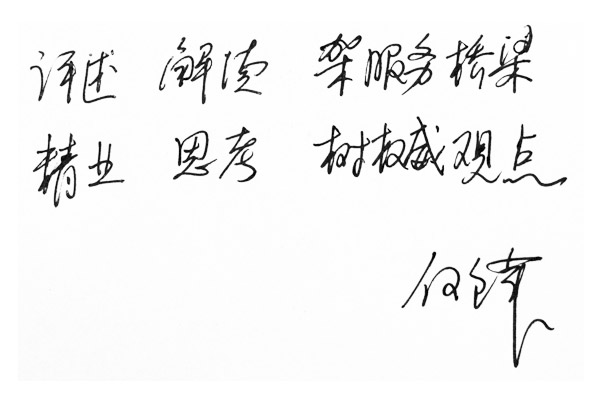 评述 解读 架服务桥梁
精业 思考 树权威观点